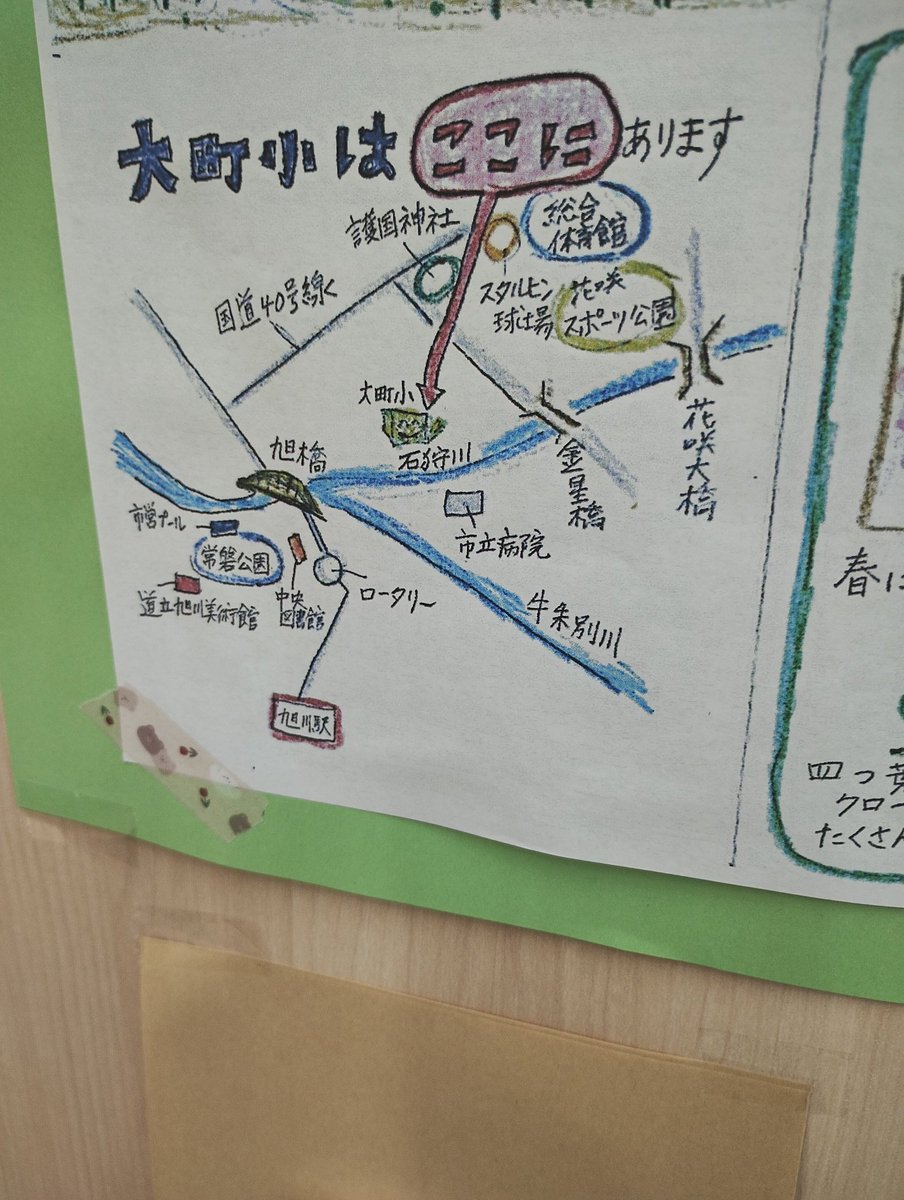 大町小は ここに あります
護国神社
総合
体育館
国道40号線
スタルヒン
球場
花咲
スポーツ公園
大町小
旭橋
石狩川
金星橋
花咲大橋
市営プール
常磐公園
市立病院
道立旭川美術館
中央
図書館
ロータリー
牛朱別川
旭川駅
春に
四つ葉
クロー
たくさん